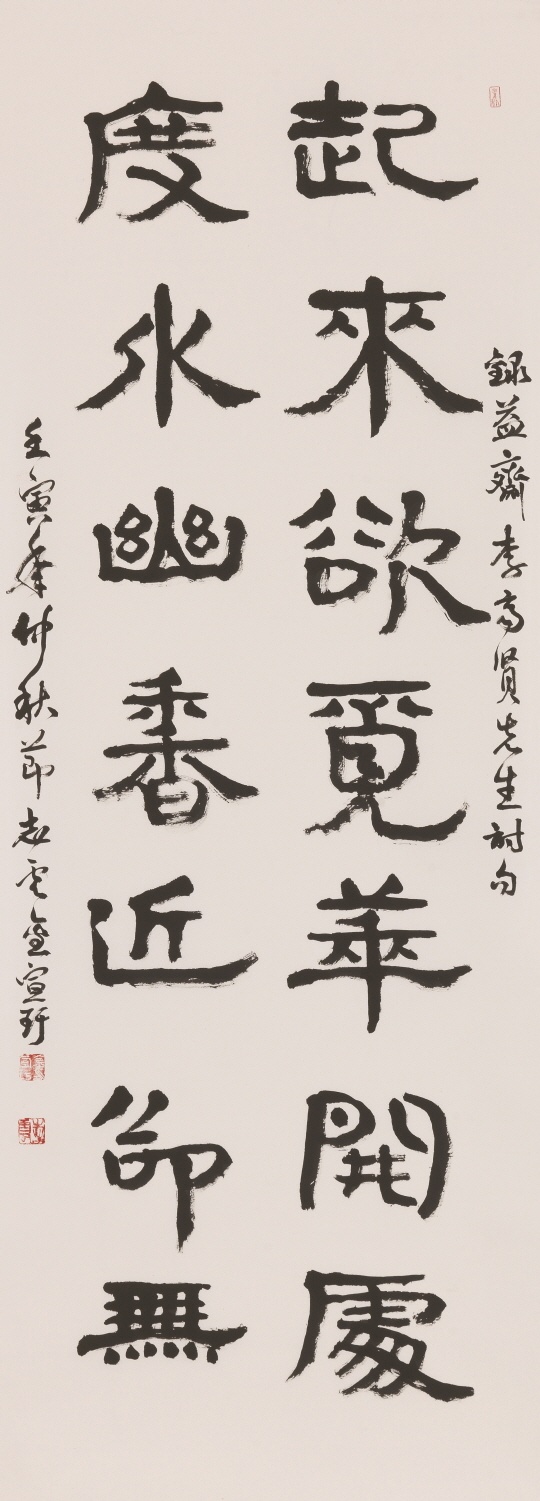 錄益齋李齊賢先生詩句
起來欲覓華開處
度水幽香近卻無
壬寅年仲秋節雲盦宣